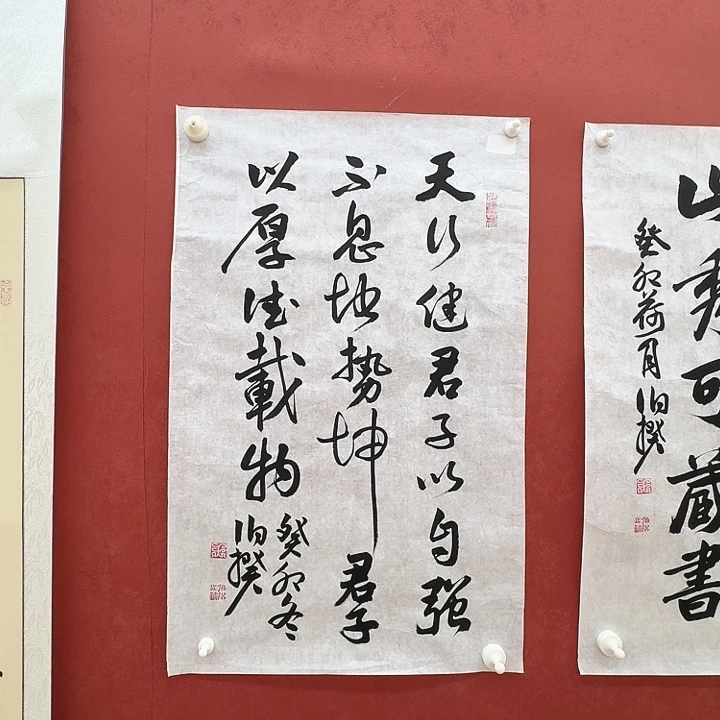 天行健君子以自强
不息地势坤君子
以厚德載物
癸卯冬
伯揆
山
可藏書
癸卯荷月伯揆